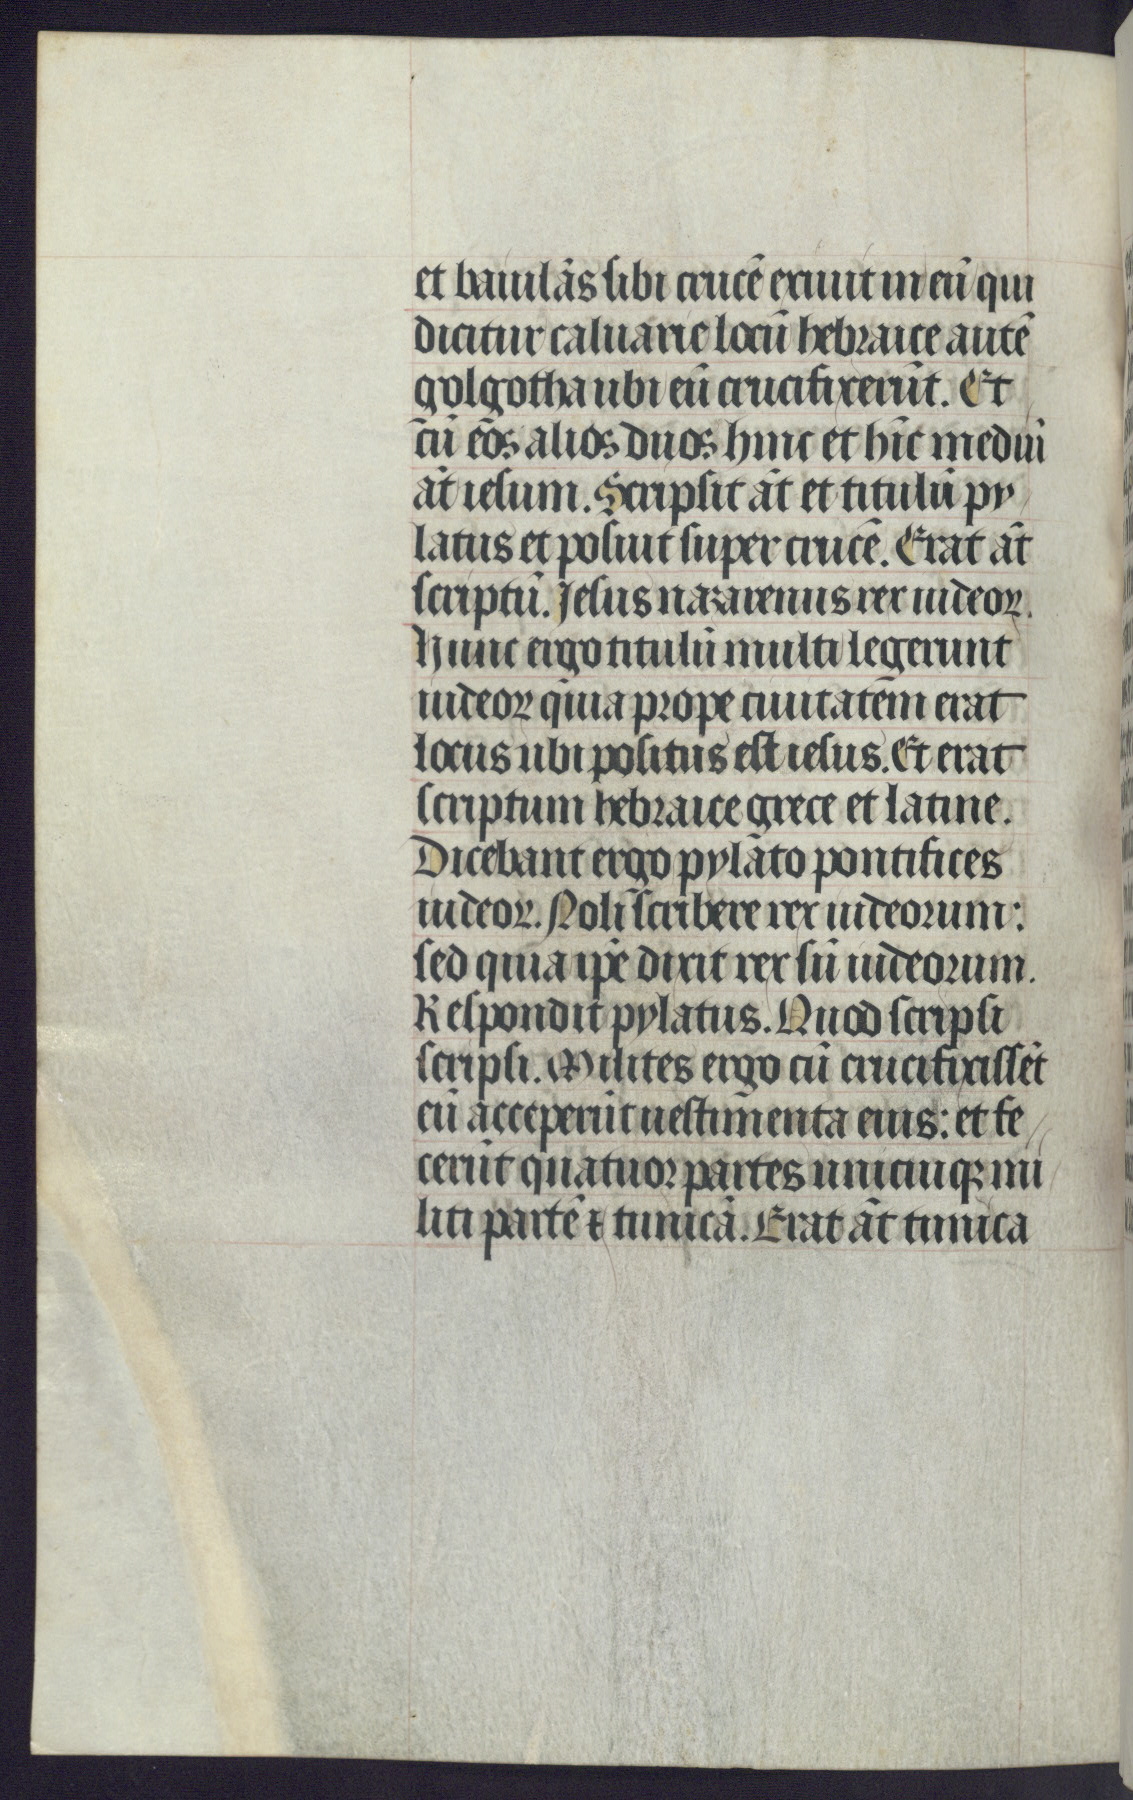 et baiulās sibi crucē exiuit in eū qui
dicitur caluarie locū hebraice autē
golgotha ubi eū crucifixerūt. Et
cū eōs alios duos hinc et hīc mediū
āt iesum. Scripsit āt et titulū py
latus et posuit super crucē. Erat āt
scriptū. Jesus nazarenus rex iudeoꝝ.
Hunc ergo titulū multi legerunt
iudeoꝝ quia prope ciuitatēm erat
locus ubi positus est iesus. Et erat
scriptum hebraice grece et latine.
Dicebant ergo pylāto pontifices
iudeoꝝ. Noli scribere rex iudeorum:
sed quia ip̄e dixit rex sū iudeorum.
Respondit pylatus. Quod scripsi
scripsi. Milites ergo cū crucifixissēt
eū acceperūt uestimenta eius: et fe
cerūt quatuor partes unicuiqꝫ mi
liti partē ⁊ tunicā. Erat āt tunica